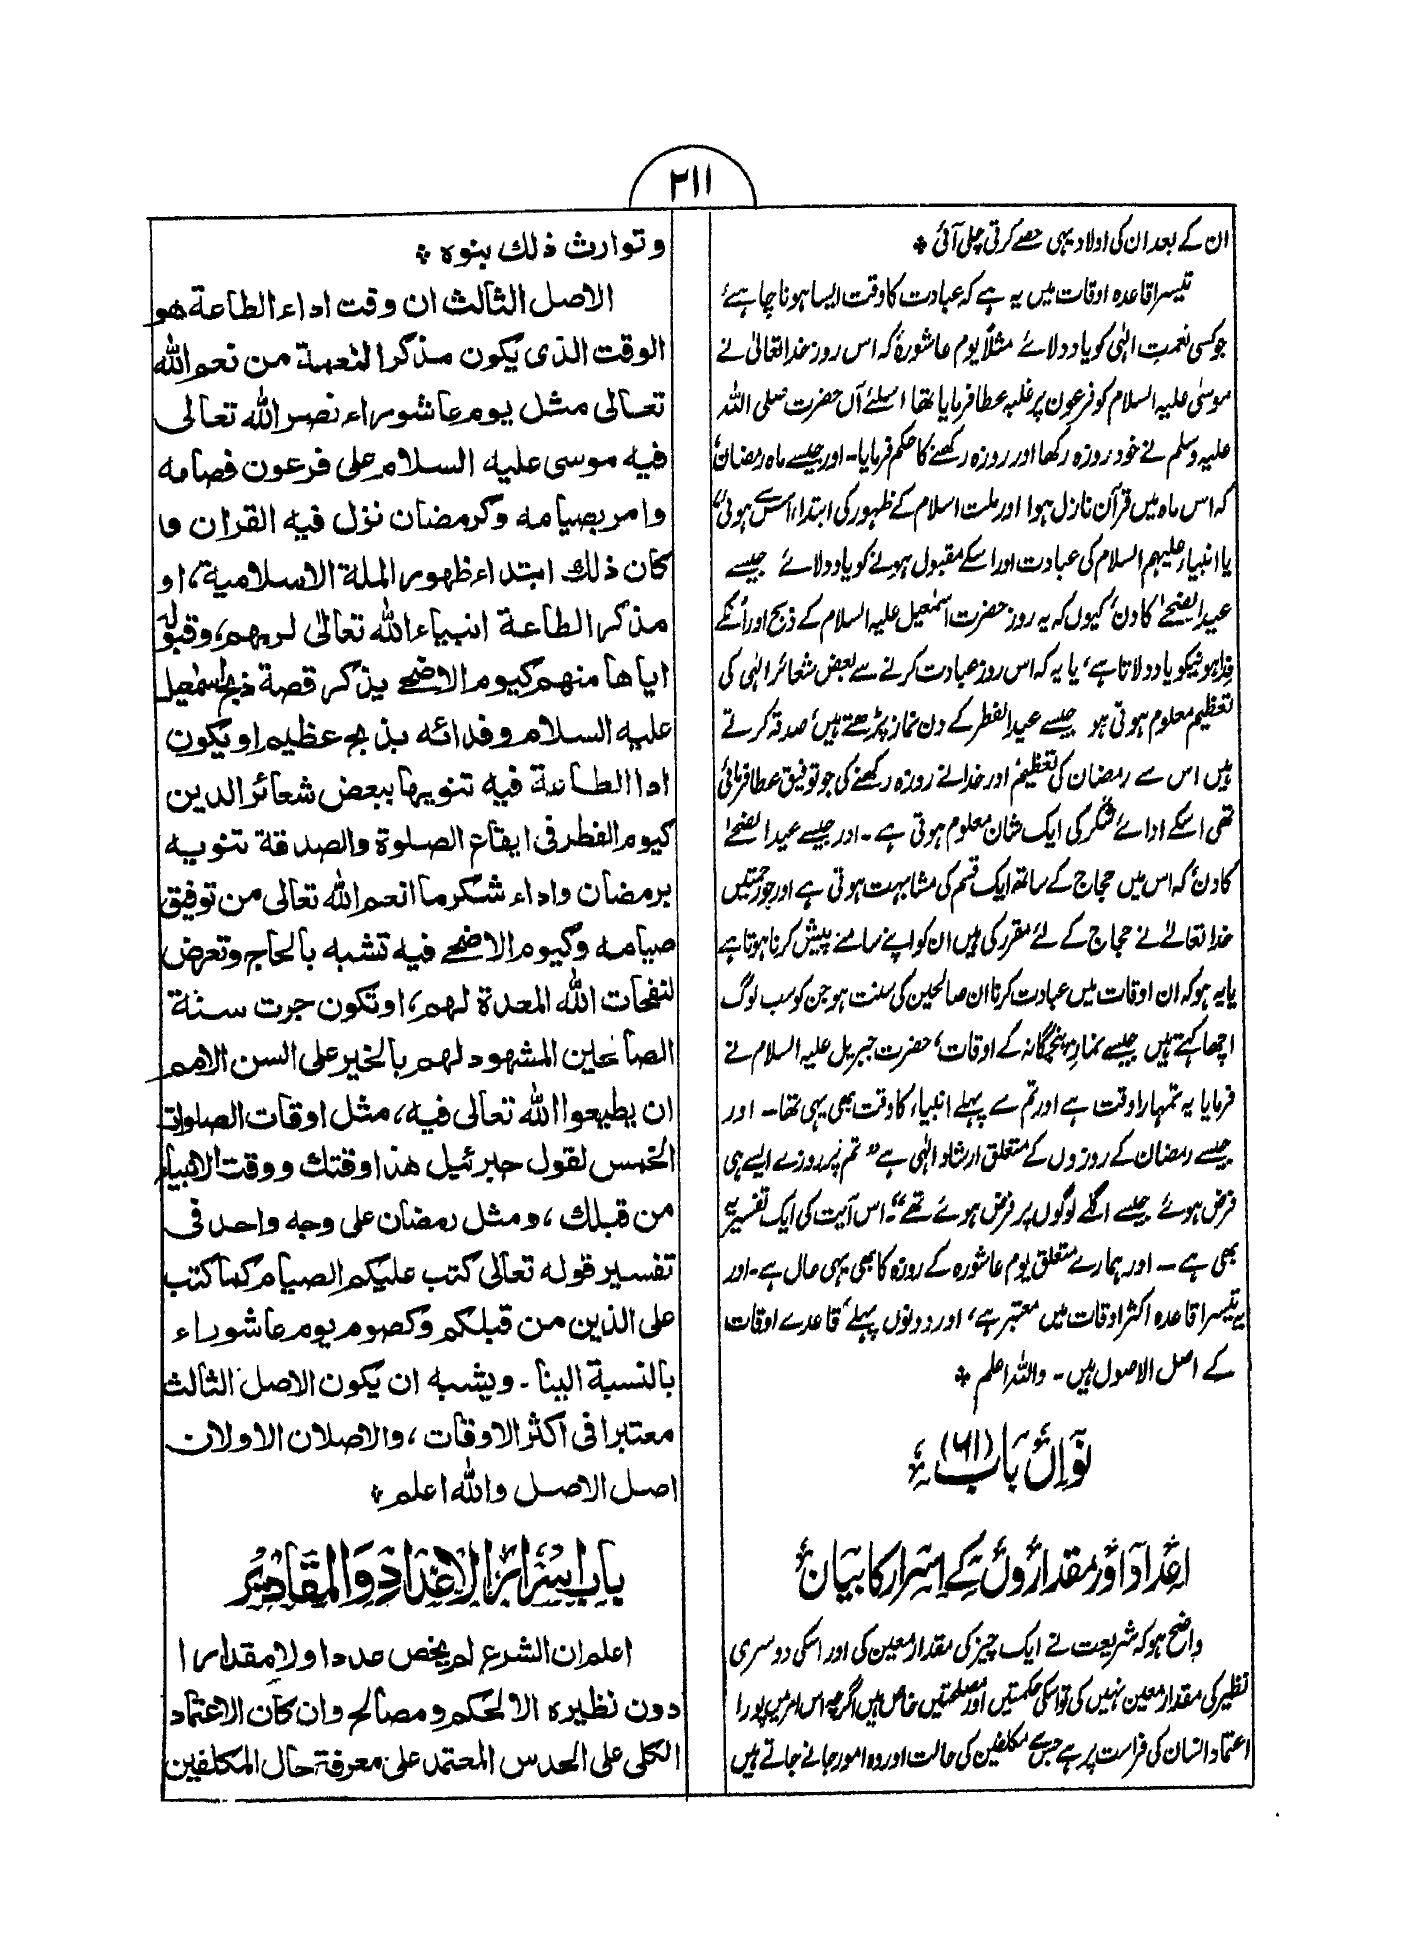 ۲۱۱
ان کے بعد ان کی اولاد یہی حصے کرتی چلی آئی ۞
تیسرا قاعدہ اوقات میں یہ ہے کہ عبادت کا وقت ایسا ہونا چاہئے
جو کسی نعمتِ الٰہی کو یاد دلائے مثلاً یوم عاشورہ کہ اس روز خدا تعالیٰ نے
موسیٰ علیہ السلام کو فرعون پر غلبہ عطا فرمایا تھا اسلئے آں حضرت صلی اللہ
علیہ وسلم نے خود روزہ رکھا اور روزہ رکھنے کا حکم فرمایا۔ اور جیسے ماہ رمضان
کہ اس ماہ میں قرآن نازل ہوا اور ملت اسلام کے ظہور کی ابتداء اس سے ہوئی،
یا انبیاء علیہم السلام کی عبادت اور اسکے مقبول ہونے کو یاد دلائے جیسے
عید الضحیٰ کا دن، کیوں کہ یہ روز حضرت اسمٰعیل علیہ السلام کے ذبح اور انکے
فدا ہونیکو یاد دلاتا ہے، یا یہ کہ اس روز عبادت کرنے سے بعض شعائر الٰہی کی
تعظیم معلوم ہوتی ہو جیسے عید الفطر کے دن نماز پڑھتے ہیں، صدقہ کرتے
ہیں اس سے رمضان کی تعظیم اور خدا نے روزہ رکھنے کی جو توفیق عطا فرمائی
تھی اسکے ادائے شکر کی ایک شان معلوم ہوتی ہے۔ اور جیسے عید الضحیٰ
کا دن، کہ اس میں حجاج کے ساتھ ایک قسم کی مشابہت ہوتی ہے اور جو رحمتیں
خدا تعالےٰ نے حجاج کے لئے مقرر کی ہیں ان کو اپنے سامنے پیش کرنا ہوتا ہے
یا یہ ہو کہ ان اوقات میں عبادت کرنا ان صالحین کی سنت ہو جن کو سب لوگ
اچھا کہتے ہیں جیسے نماز پنجگانہ کے اوقات، حضرت جبریل علیہ السلام نے
فرمایا یہ تمہارا وقت ہے اور تم سے پہلے انبیاء کا وقت بھی یہی تھا۔ اور
جیسے رمضان کے روزوں کے متعلق ارشاد الٰہی ہے "تم پر روزے ایسے ہی
فرض ہوئے جیسے اگلے لوگوں پر فرض ہوئے تھے"۔ اس آیت کی ایک تفسیر یہ
بھی ہے ۔ اور ہمارے متعلق یوم عاشورہ کے روزہ کا بھی یہی حال ہے۔ اور
یہ تیسرا قاعدہ اکثر اوقات میں معتبر ہے، اور دونوں پہلے قاعدے اوقات
کے اصل الاصول ہیں۔ واللہ اعلم ۞
نواں باب (۶۱)
اعداد اور مقداروں کے اسرار کا بیان
واضح ہو کہ شریعت نے ایک چیز کی مقدار معین کی اور اسکی دوسری
نظیر کی مقدار معین نہیں کی تو اسکی حکمتیں اور مصلحتیں خاص ہیں اگرچہ اس امر میں پورا
اعتماد انسان کی فراست پر ہے جس سے مکلفین کی حالت اور وہ امور جانے جاتے ہیں
وتوارث ذلك بنوه ۞
الاصل الثالث ان وقت اداء الطاعة هو
الوقت الذى يكون مذكرا لنعمة من نعم الله
تعالى مثل يوم عاشوراء نصر الله تعالى
فيه موسى عليه السلام على فرعون فصامه
وامر بصيامه وكرمضان نزل فيه القران و
كان ذلك ابتداء ظهور الملة الاسلامية، او
مذكر الطاعة انبياء الله تعالى لربهم، وقبوله
اياها منهم كيوم الاضحى يذكر قصة ذبح اسمعيل
عليه السلام وفدائه بذبح عظيم او يكون
اداء الطاعة فيه تنويها ببعض شعائر الدين
كيوم الفطر فى ايقاع الصلوة والصدقة تنويه
برمضان واداء شكر ما انعم الله تعالى من توفيق
صيامه وكيوم الاضحى فيه تشبه بالحاج وتعرض
لنفحات الله المعدة لهم، او تكون جرت سنة
الصالحين المشهود لهم بالخير على السن الامم
ان يطيعوا الله تعالى فيه، مثل اوقات الصلوات
الخمس لقول جبرئيل هذا وقتك ووقت الانبياء
من قبلك، ومثل رمضان على وجه واحد فى
تفسير قوله تعالى كتب عليكم الصيام كما كتب
على الذين من قبلكم وكصوم يوم عاشوراء
بالنسبة الينا۔ ويشبه ان يكون الاصل الثالث
معتبرا فى اكثر الاوقات، والاصلان الاولان
اصل الاصل والله اعلم ۞
باب اسرار الاعداد والمقادير
اعلم ان الشرع لم يخص عددا ولا مقدارا
دون نظيره الا لحكم ومصالح وان كان الاعتماد
الكلى على الحدس المعتمد على معرفة حال المكلفين